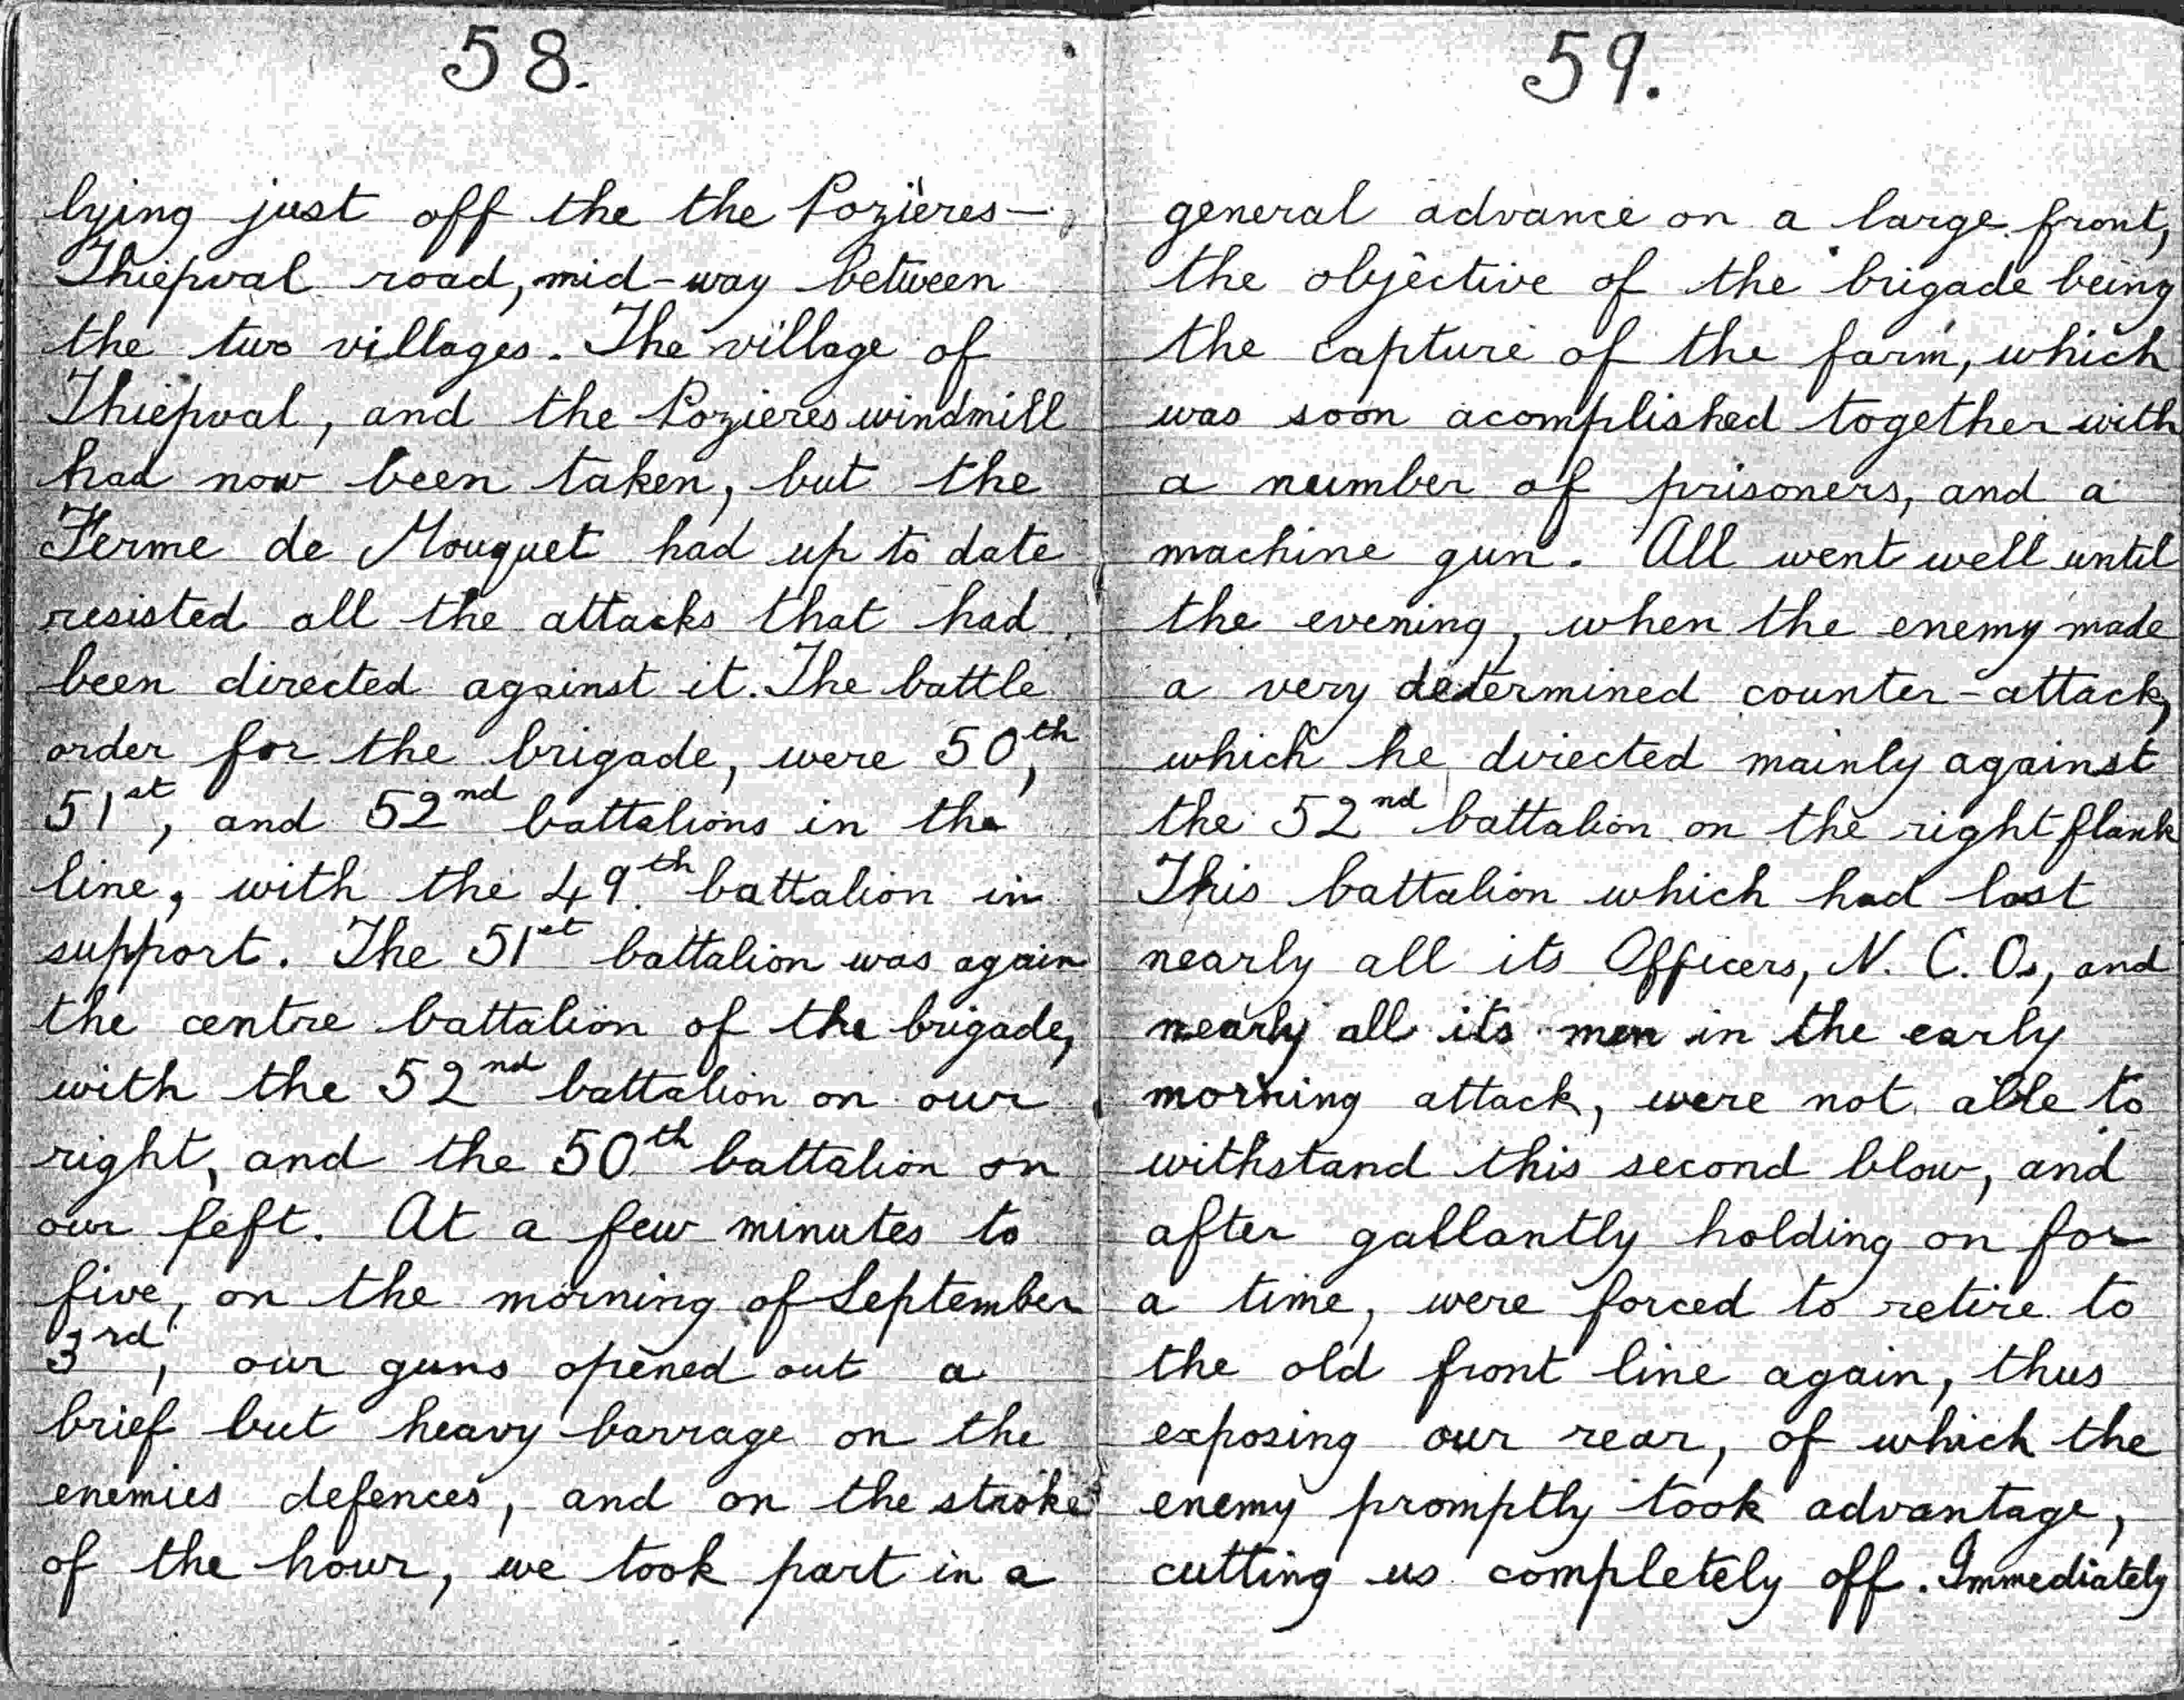 58.
lying just off the the Pozières—
Thiepval road, mid-way between
the two villages. The village of
Thiepval, and the Pozieres windmill
had now been taken, but the
Ferme de Mouquet had up to date
resisted all the attacks that had
been directed against it. The battle
order for the brigade, were 50th,
51st, and 52nd battalions in the
line, with the 49th battalion in
support. The 51st battalion was again
the centre battalion of the brigade,
with the 52nd battalion on our
right, and the 50th battalion on
our left. At a few minutes to
five, on the morning of September
3rd, our guns opened out a
brief but heavy barrage on the
enemies defences, and on the stroke
of the hour, we took part in a
59.
general advance on a large front,
the objective of the brigade being
the capture of the farm, which
was soon acomplished together with
a number of prisoners, and a
machine gun. All went well until
the evening, when the enemy made
a very determined counter-attack,
which he directed mainly against
the 52nd battalion on the right flank
This battalion which had lost
nearly all its Officers, N. C. Os, and
nearly all its men in the early
morning attack, were not able to
withstand this second blow, and
after gallantly holding on for
a time, were forced to retire to
the old front line again, thus
exposing our rear, of which the
enemy promptly took advantage,
cutting us completely off. Immediately